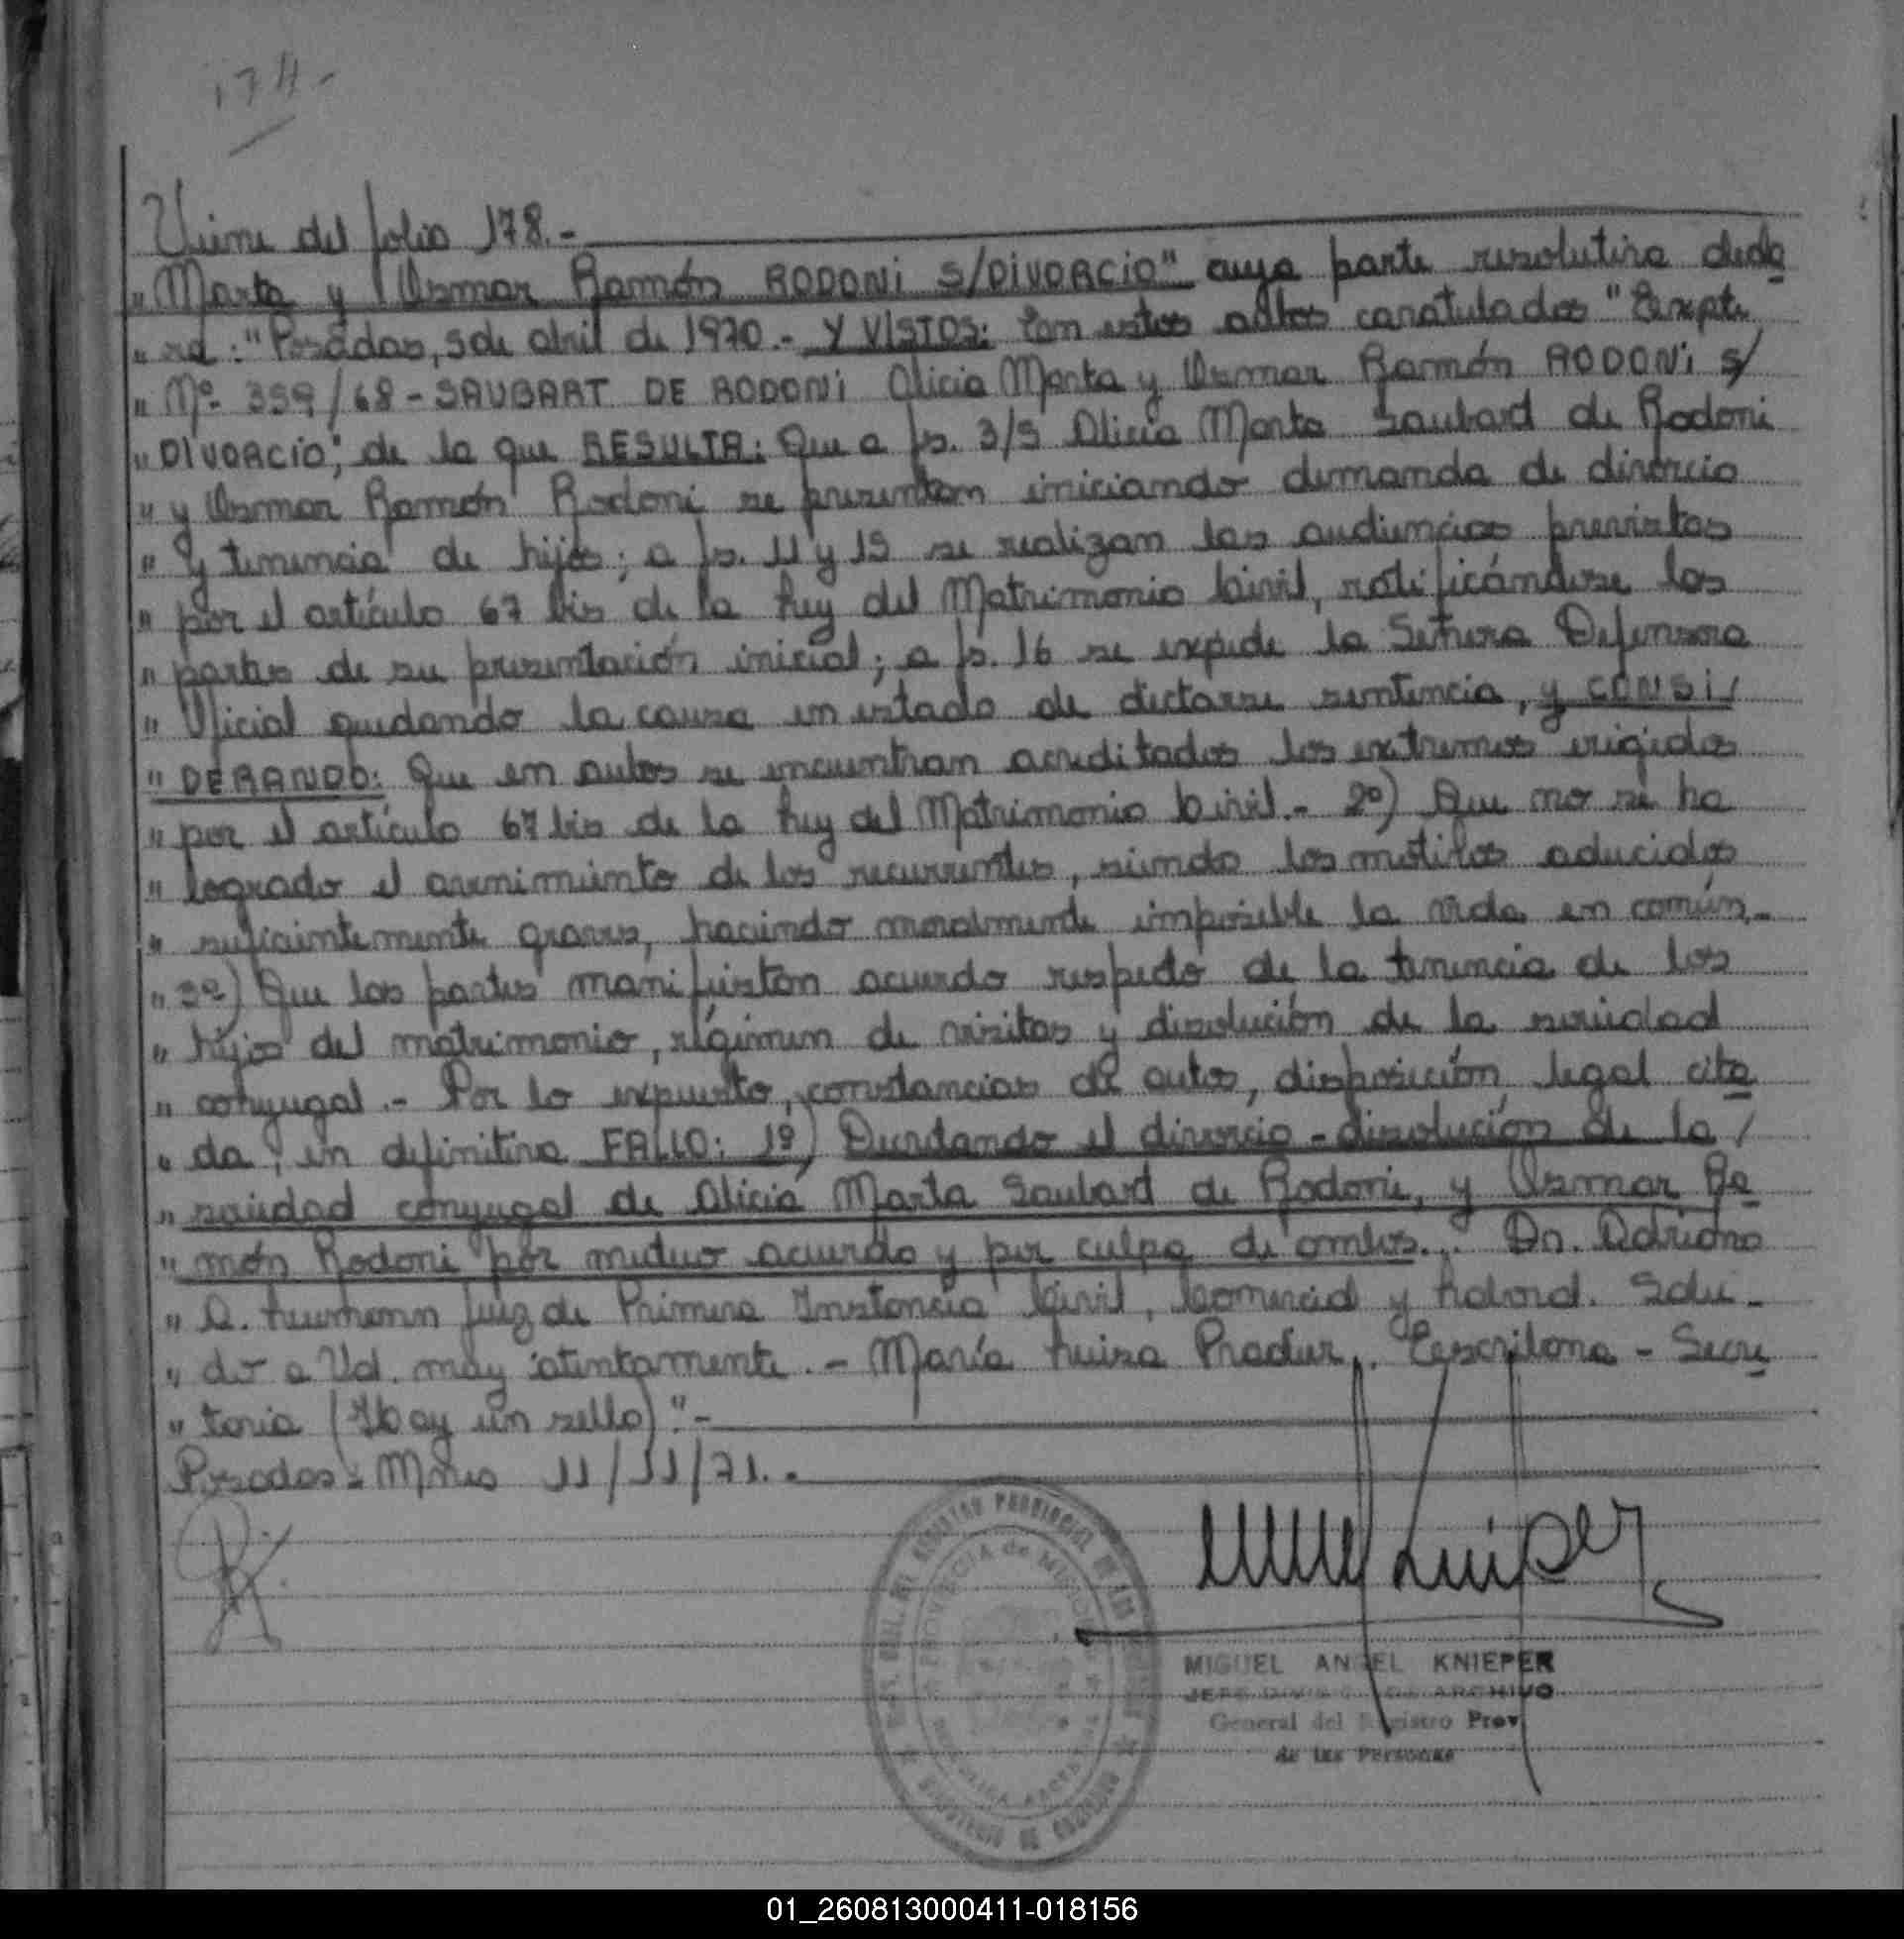 174.-
Viene del folio 178.-
" Marta y Osmar Ramón RODONI S/DIVORCIO" cuya parte resolutiva decla
" ra: "Posadas, 5 de abril de 1970.- Y VISTOS: Son estos autos caratulados "Expte
" Nº 359/68 - SAUBART DE RODONI Alicia Marta y Osmar Ramón RODONI S/
" DIVORCIO", de la que RESULTA: Que a fs. 3/5 Alicia Marta Saubard de Rodoni
" y Osmar Ramón Rodoni se presentan iniciando demanda de divorcio
" y tenencia de hijos; a fs. 11 y 15 se realizan las audiencias previstas
" por el artículo 67 bis de la Ley del Matrimonio Civil, ratificándose las
" partes de su presentación inicial; a fs. 16 se expide la Señora Defensora
" Oficial quedando la causa en estado de dictarse sentencia, y CONSI/
" DERANDO: Que en autos se encuentran acreditados los extremos exigidos
" por el artículo 67 bis de la Ley del Matrimonio Civil.- 2º) Que no se ha
" logrado el avenimiento de los recurrentes, siendo los motivos aducidos
" suficientemente graves, haciendo moralmente imposible la vida en común.-
" 3º) Que las partes manifiestan acuerdo respecto de la tenencia de los
" hijos del matrimonio, régimen de visitas y disolución de la sociedad
" conyugal.- Por lo expuesto, constancias de autos, disposición legal cita
" da, en definitiva FALLO: 1º) Decretando el divorcio - disolución de la /
" sociedad conyugal de Alicia Marta Saubard de Rodoni, y Osmar Ra
" món Rodoni por mutuo acuerdo y por culpa de ambos... Dr. Adriano
" A. Juez de Primera Instancia Civil, Comercial y Laboral. Salu-
" do a Ud. muy atentamente.- María Luisa Escribana - Secre
" taria (Hay un sello)".-
Posadas - Mnes 11/11/71.-
REGISTRO PROVINCIAL DE LAS
PROVINCIA de MISIONES
MIGUEL ANGEL KNIEPER
JEFE ARCHIVO
General del Registro Prov
de las Personas
01_260813000411-018156